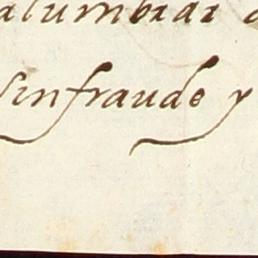 alumbrar
sinfraude y